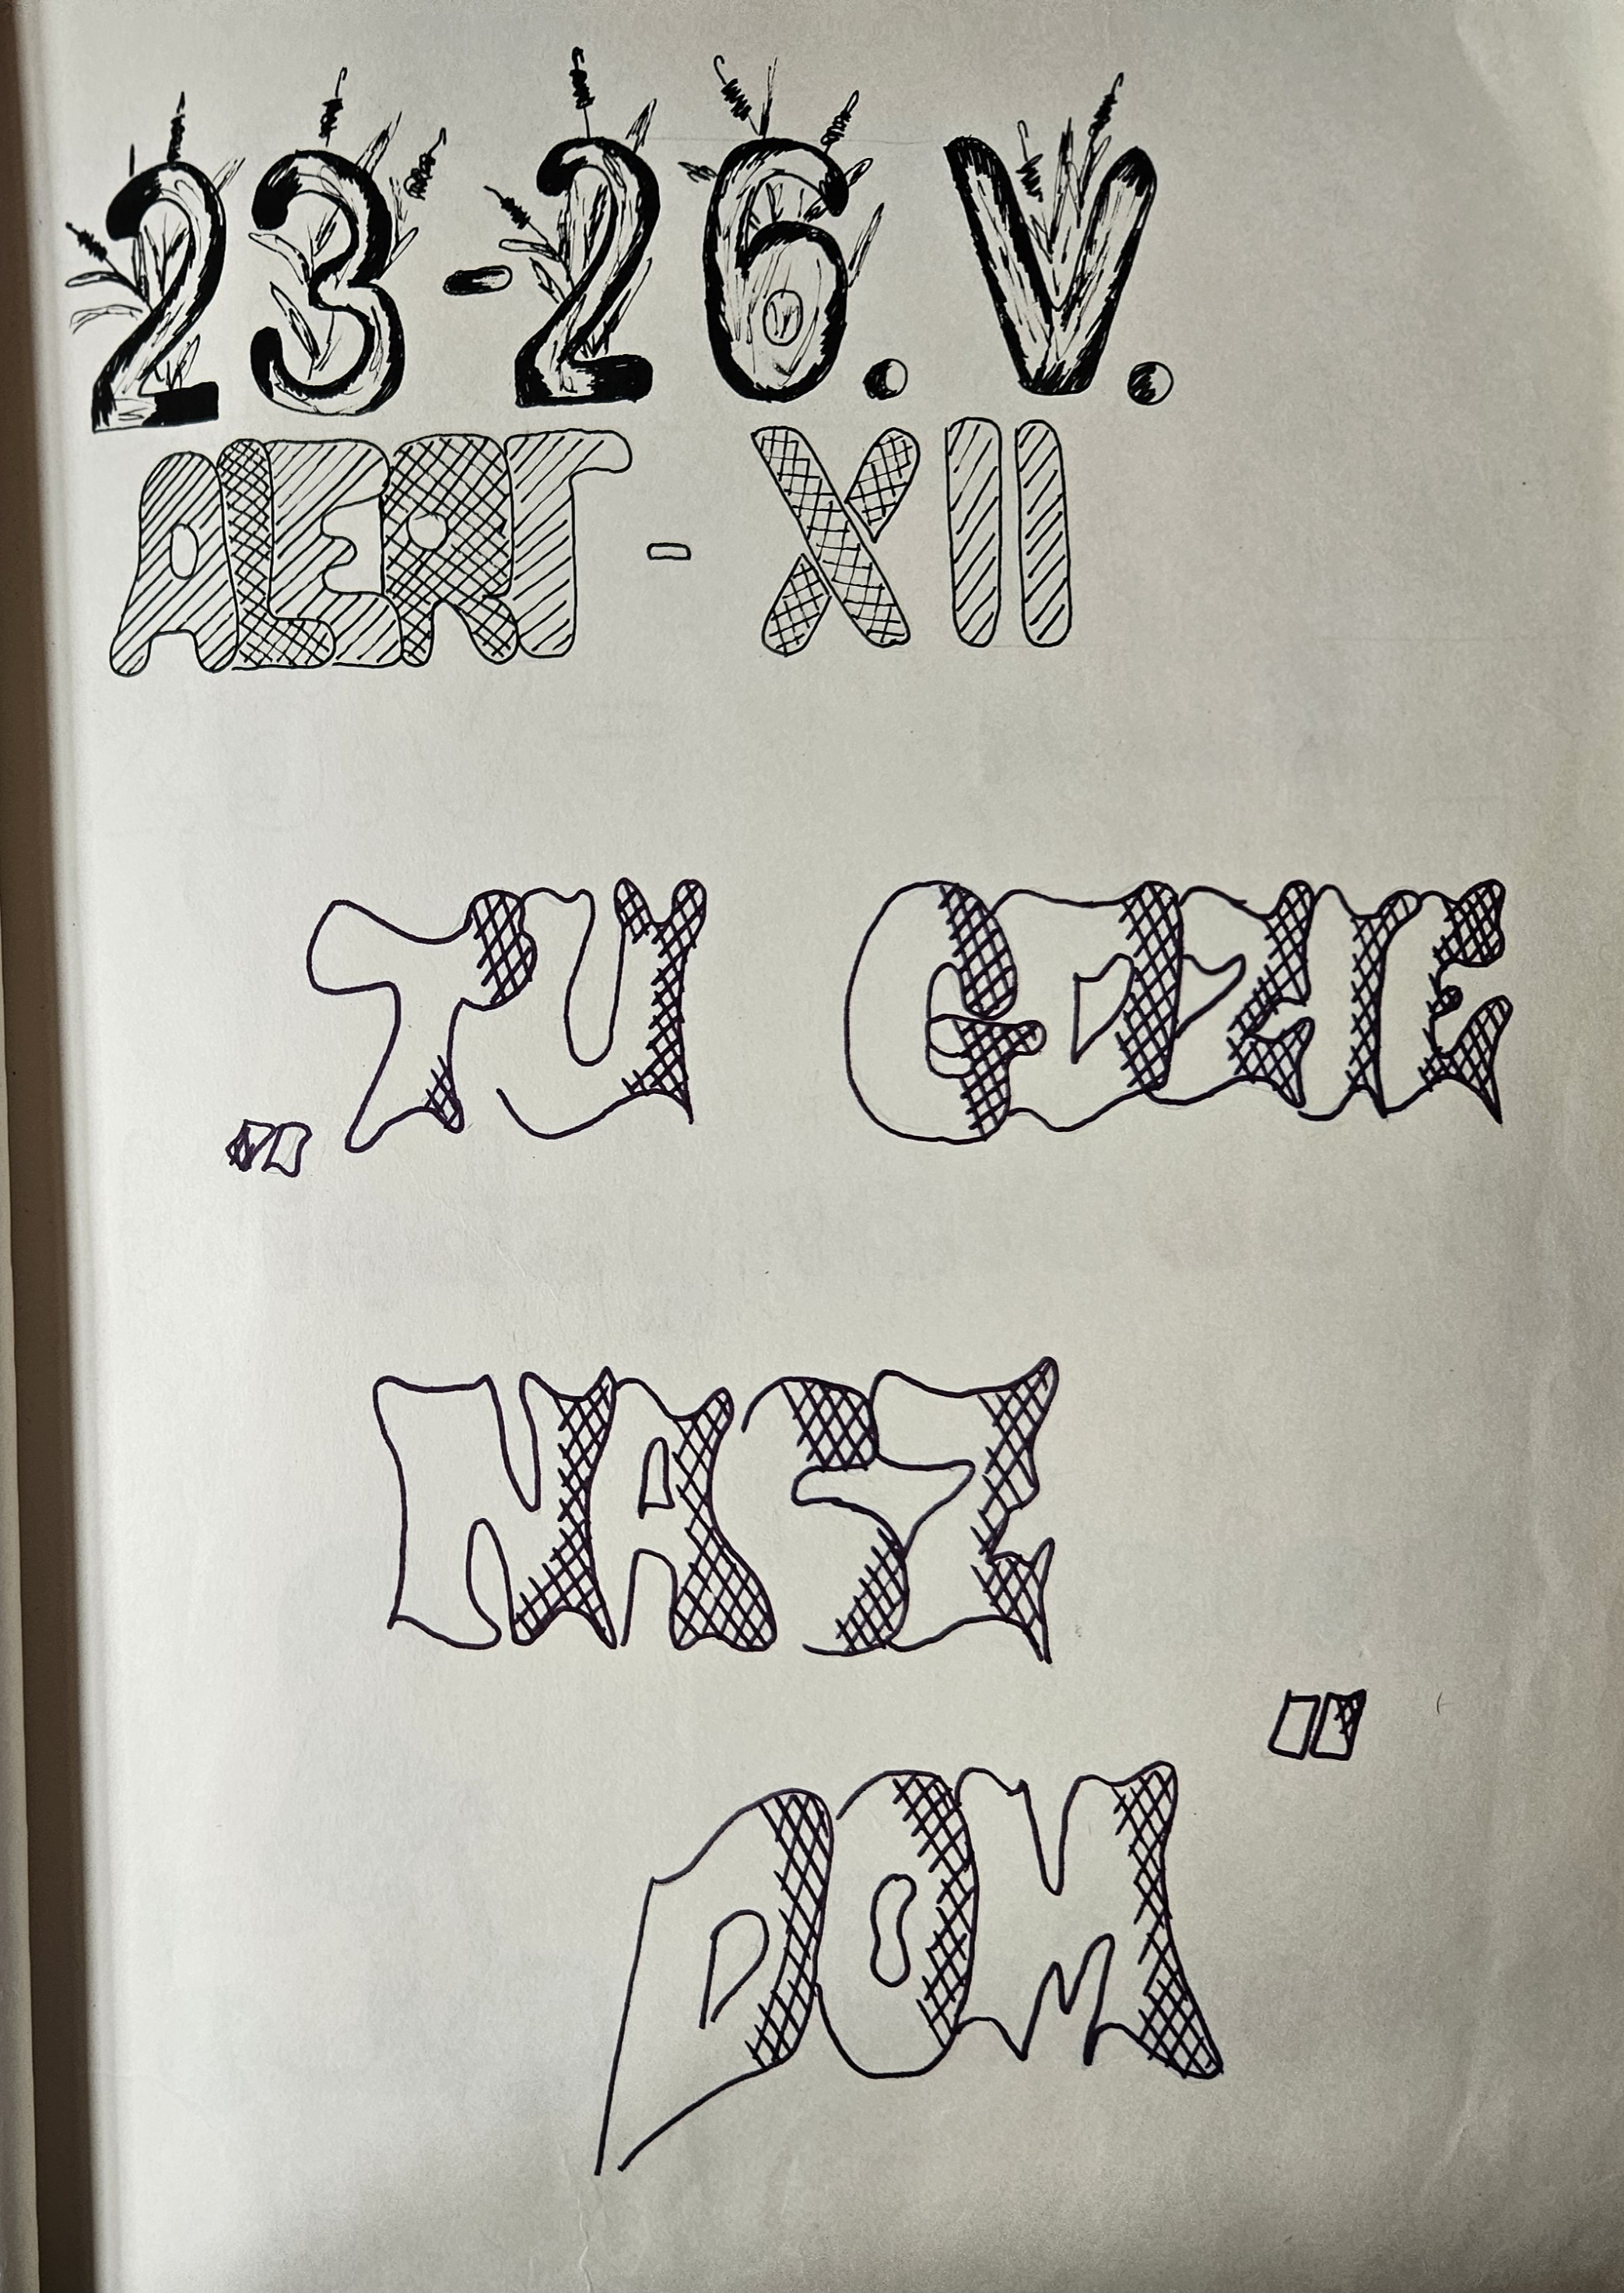 23-26. V.
ALERT - XII
„TU GDZIE
NASZ
DOM”